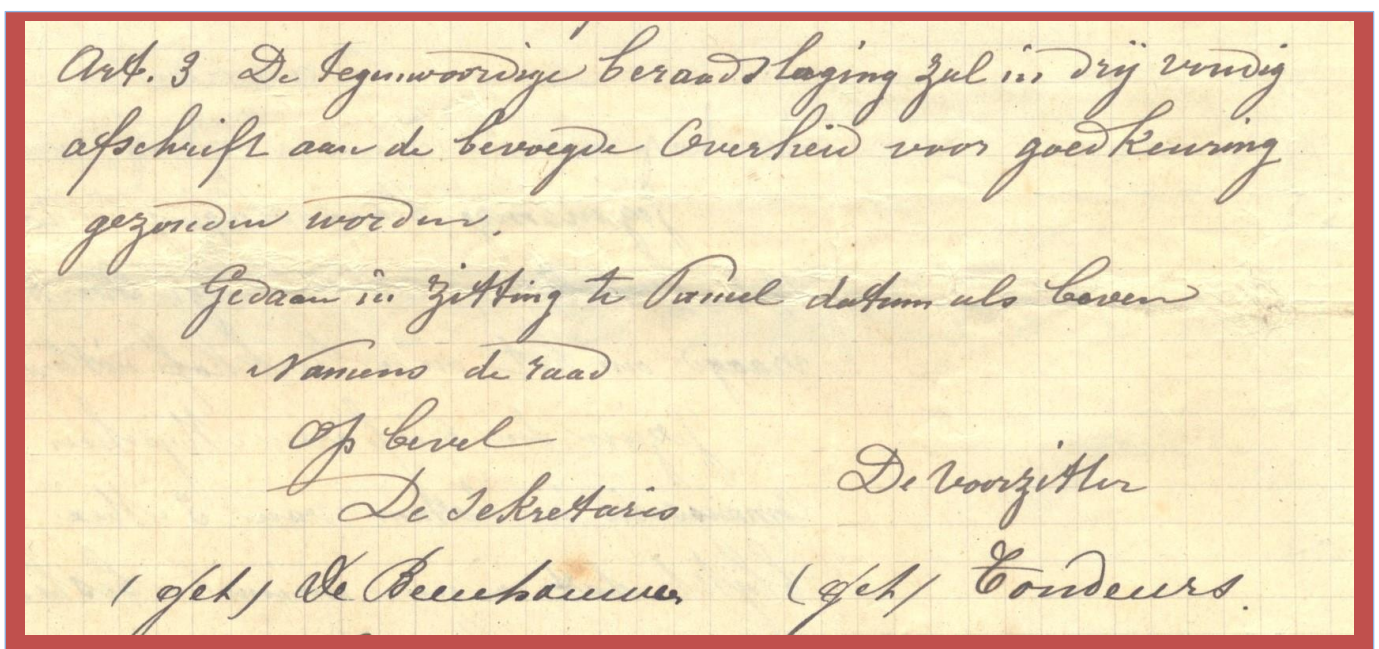 Art. 3 De tegenwoordige beraadslaging zal in drij voudig
afschrift aan de bevoegde Overheid voor goedkeuring
gezonden worden.
Gedaan in zitting te Pamel datum als boven
Namens de raad
Op bevel
De Voorzitter
De Sekretaris
(geh) De Beenhouwer (geh) Tondeurs.